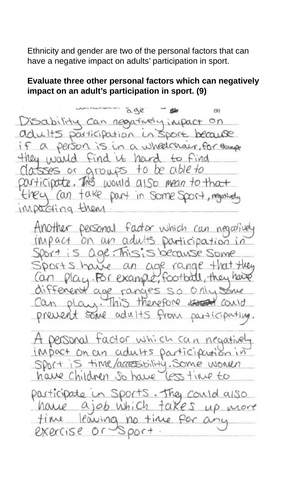 Ethnicity and gender are two of the personal factors that can
have a negative impact on adults' participation in sport.
Evaluate three other personal factors which can negatively
impact on an adult's participation in sport. (9)
age (9)
Disability can negatively impact on
adults participation in sport because
if a person is in a wheelchair, for
they would find it hard to find
classes or groups to be able to
participate. This would also mean to that
they can take part in some sport, negatively
impacting them
Another personal factor which can negatively
impact on an adults participation in
sport is age. This is because some
sports have an age range that they
can play. For example, football, they have
different age ranges so only some
can play. This therefore could
prevent some adults from participating.
A personal factor which can negatively
impact on an adults participation in
sport is time/accessibility. Some women
have children so have less time to
participate in sports. They could also
have a job which takes up more
time leaving no time for any
exercise or sport.